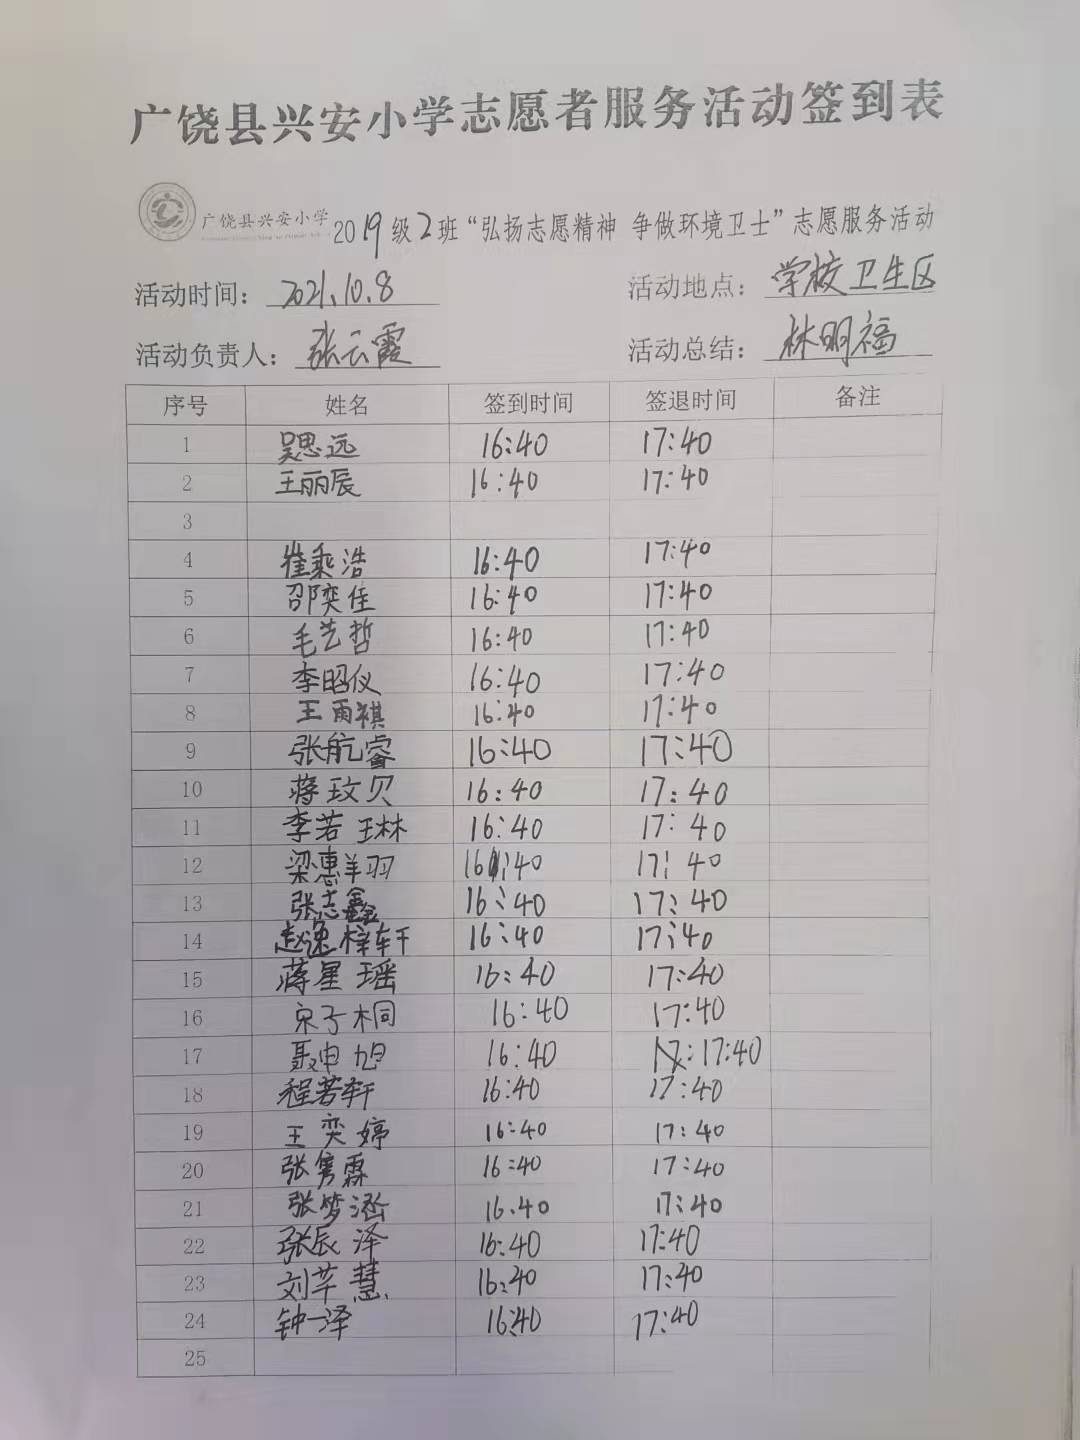 广饶县兴安小学志愿者服务活动签到表
广饶县兴安小学 2019级2班“弘扬志愿精神 争做环境卫士”志愿服务活动
活动时间： 2021.10.8 活动地点： 学校卫生区
活动负责人： 张云霞 活动总结： 林明福
序号 姓名 签到时间 签退时间 备注
1 吴思远 16:40 17:40
2 王丽辰 16:40 17:40
3
4 崔乘浩 16:40 17:40
5 邵奕佳 16:40 17:40
6 毛艺哲 16:40 17:40
7 李昭仪 16:40 17:40
8 王雨祺 16:40 17:40
9 张航睿 16:40 17:40
10 蒋玟贝 16:40 17:40
11 李若琳 16:40 17:40
12 梁惠翔 16:40 17:40
13 张志鑫 16:40 17:40
14 赵逸梓轩 16:40 17:40
15 蒋星瑶 16:40 17:40
16 宋子桐 16:40 17:40
17 聂申旭 16:40 17:40
18 程若轩 16:40 17:40
19 王奕婷 16:40 17:40
20 张隽霖 16:40 17:40
21 张梦涵 16.40 17:40
22 张辰泽 16:40 17:40
23 刘芊慧 16:40 17:40
24 钟一泽 16:40 17:40
25